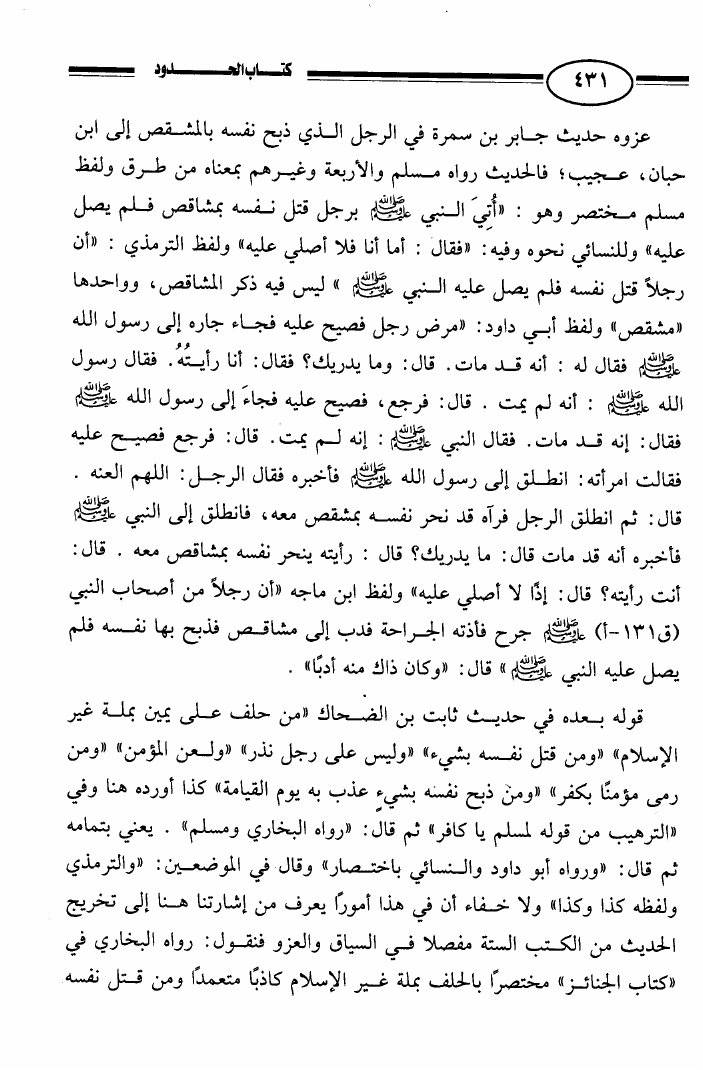 ٤٣١ كتـــاب الحــــــدود
عزوه حديث جـابر بن سمرة في الرجل الـذي ذبح نفسه بالمشـقص إلى ابن
حبان، عـجيب؛ فالحديث رواه مـسلم والأربعة وغيـرهم بمعناه من طـرق ولفظ
مسلم مـختصر وهو : «أُتِيَ الـنبي ﷺ برجل قتل نـفسه بمشاقص فـلم يصل
عليه» وللنسائي نحوه وفيه: «فقال : أما أنا فلا أصلي عليه» ولفظ الترمذي : «أن
رجلاً قتل نفسه فلم يصل عليه الـنبي ﷺ » ليس فيه ذكر المشاقص، وواحدها
«مشقص» ولفظ أبـي داود: «مرض رجل فصيح عليه فجـاء جاره إلى رسول الله
ﷺ فقال له : أنه قـد مات. قال: وما يدريك؟ فقال: أنا رأيـتُهُ. فقال رسول
الله ﷺ : أنه لم يمت . قال: فرجع، فصيح عليه فجاءَ إلى رسول الله ﷺ
فقال: إنه قـد مات. فقال النبي ﷺ : إنه لـم يمت. قال: فرجع فصيـح عليه
فقالت امرأته: انطـلق إلى رسول الله ﷺ فأخبره فقال الرجـل: اللهم العنه .
قال: ثم انطلق الرجل فرآه قد نحر نفسـه بمشقص معه، فانطلق إلى النبي ﷺ
فأخبره أنه قد مات قال: ما يدريك؟ قال : رأيته ينحر نفسه بمشاقص معه . قال:
أنت رأيته؟ قال: إذًا لا أصلي عليه» ولفظ ابن ماجه «أن رجلاً من أصحاب النبي
(ق١٣١-أ) ﷺ جرح فأذته الجـراحة فدب إلى مشاقـص فذبح بها نفـسه فلم
يصل عليه النبي ﷺ » قال: «وكان ذاك منه أدبًا» .
قوله بـعده في حديـث ثابت بن الضـحاك «من حلف عـلى يمين بملـة غير
الإسلام» «ومن قتل نفـسه بشيء» «وليس على رجل نذر» «ولـعن المؤمن» «ومن
رمى مؤمنًا بكفر» «ومن ذبح نفسه بشيءٍ عذب به يوم القيامة» كذا أورده هنا وفي
«الترهيب من قوله لمسلم يا كافر» ثم قال: «رواه البخاري ومسلم» . يعني بتمامه
ثم قال: «ورواه أبو داود والـنسائي باختـصار» وقال في الموضعـين: «والترمذي
ولفظه كذا وكذا» ولا خـفاء أن في هذا أمورًا يعرف من إشارتنا هنـا إلى تخريج
الحديث من الكتب الستة مفصلا فـي السياق والعزو فنقـول: رواه البخاري في
«كتاب الجنائـز» مختصرًا بالحلف بملة غـير الإسلام كاذبًا متعمدًا ومن قـتل نفسه